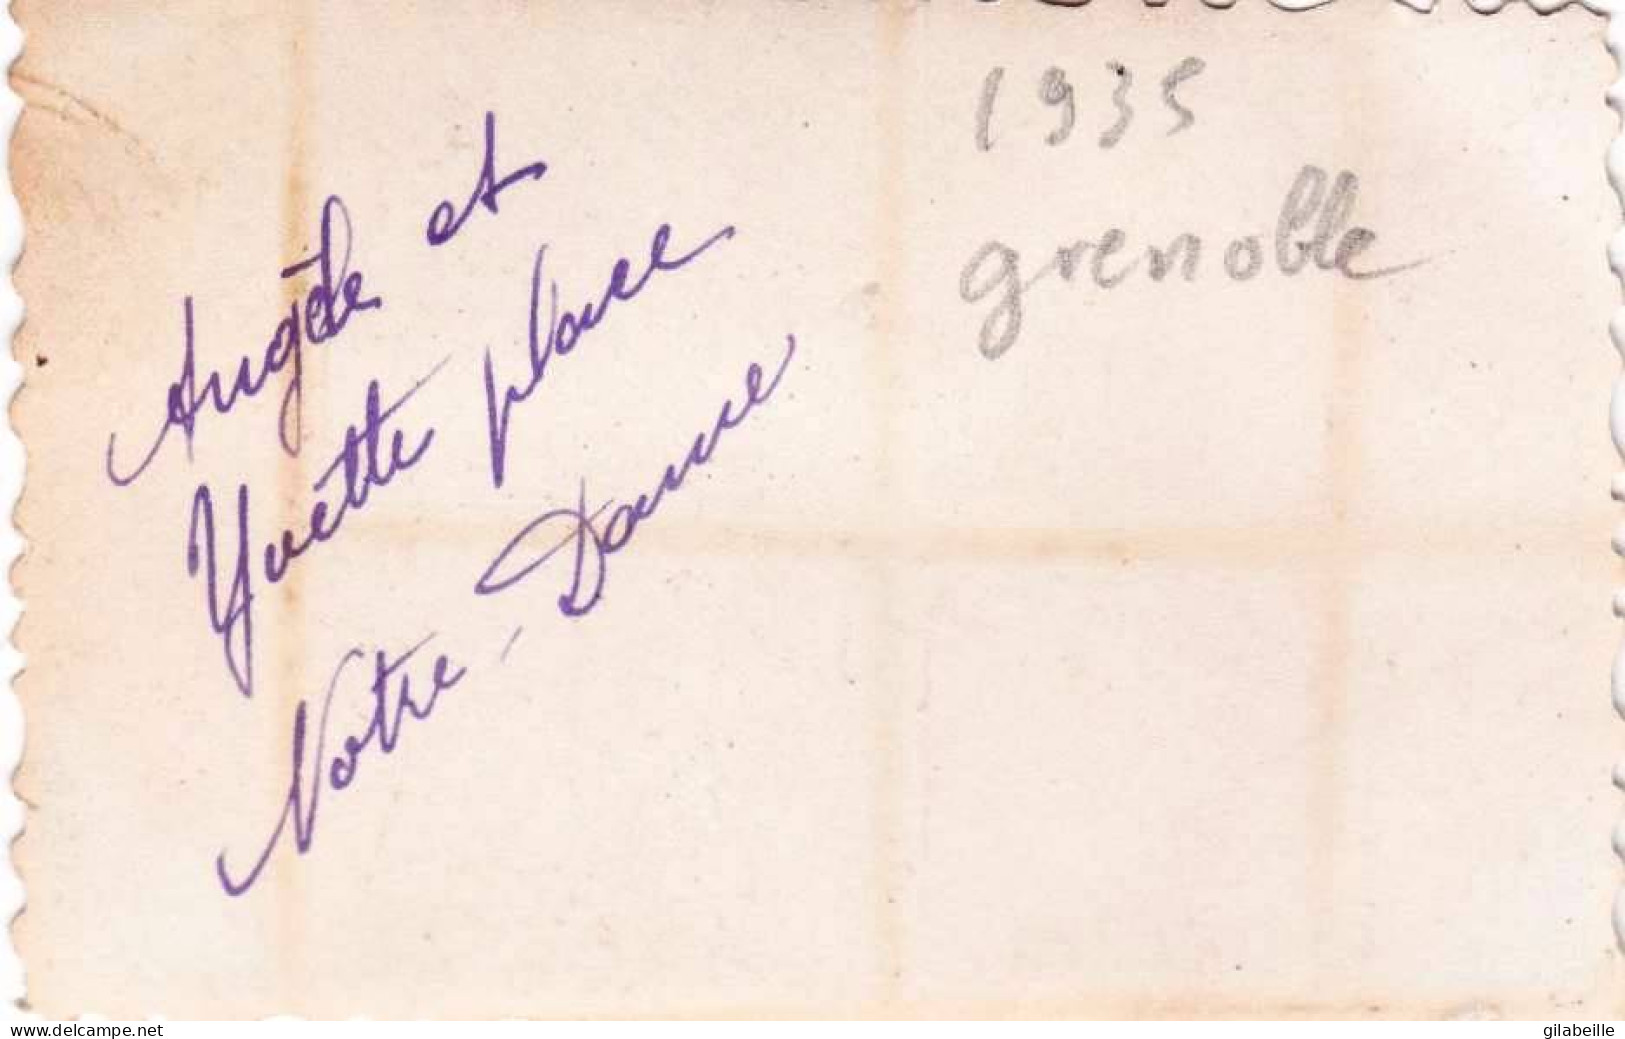 Angèle et
Yvette place
Notre-Dame
1935
grenoble
www.delcampe.net
gilabeille